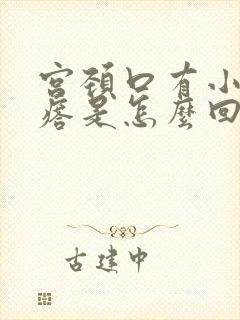 宮頸口有小
痞是怎麼回
古建中